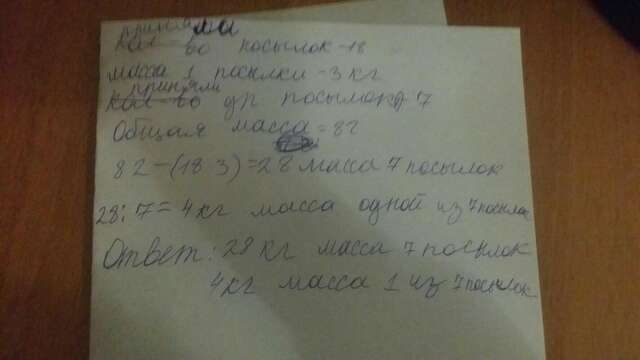 приняли
Кол-во посылок - 18
масса 1 посылки - 3 кг
приняли
Кол-во др посылок 7
Общая масса = 82
82-(18 3)=28 масса 7 посылок
28:7=4кг масса одной из 7 посылок
Ответ: 28 кг масса 7 посылок
4кг масса 1 из 7 посылок